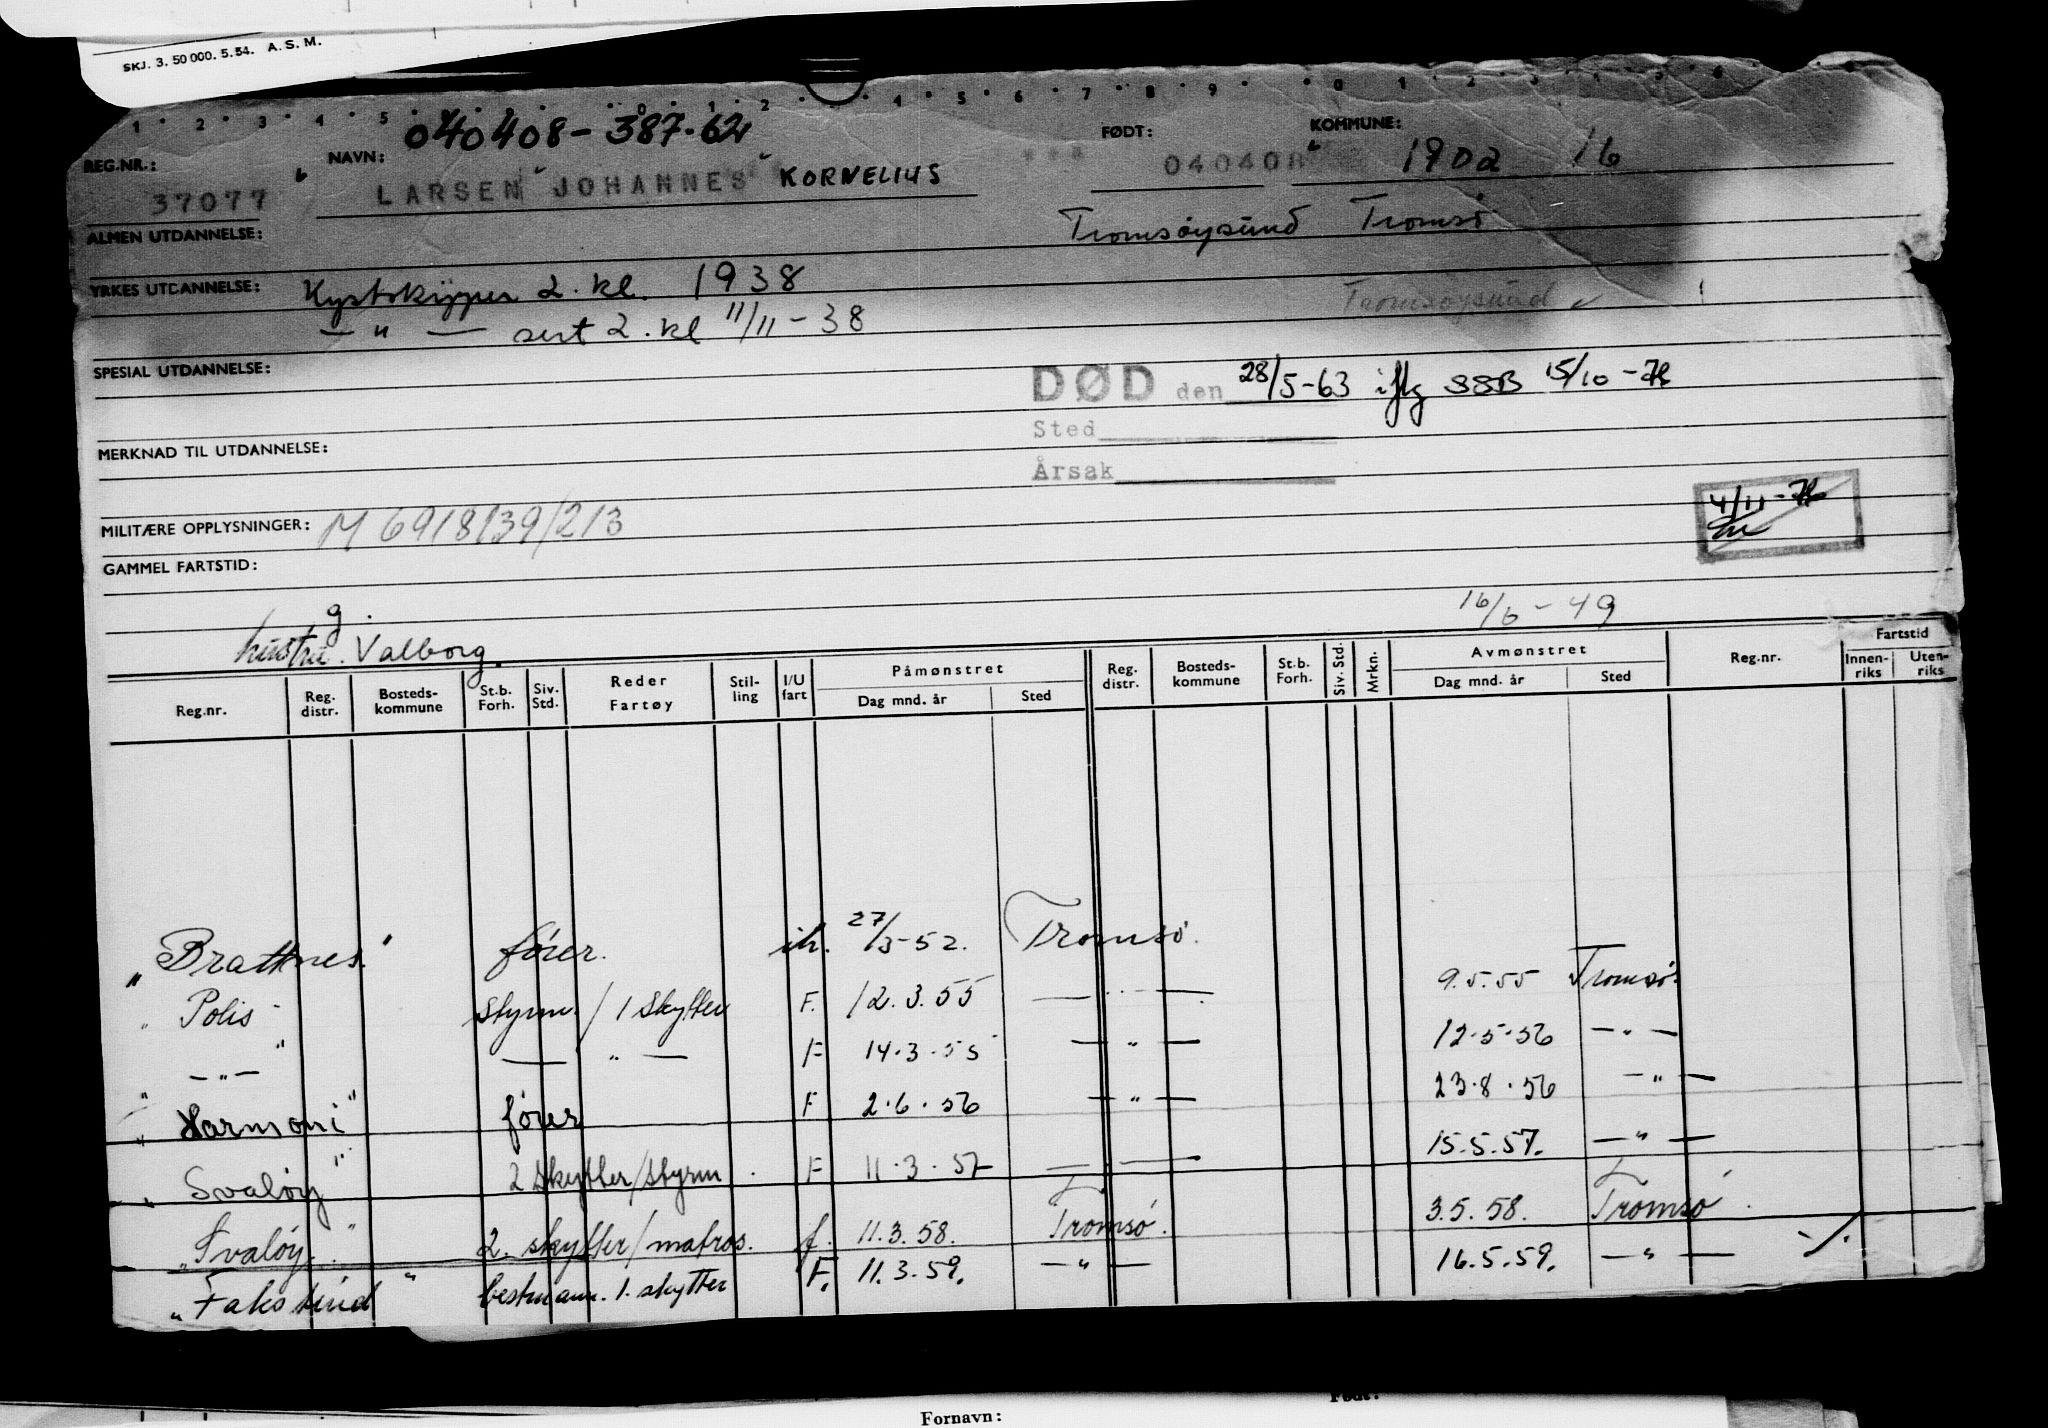 SKJ. 3. 50 000. 5. 54. A. S. M.
1 2 3 4 5 0 1 2 4 5 6 7 8 9 0 1 2 3 4 5 6
040408-387.62
REG.NR.: NAVN: FØDT: KOMMUNE:
37077 LARSEN "JOHANNES" KORNELIUS 040408 1902 16
ALMEN UTDANNELSE: Tromsøysund Tromsø
YRKES UTDANNELSE: Kystskipper 2. kl. 1938 Tromsøysund
— " — sert 2. kl 11/11-38
SPESIAL UTDANNELSE:
DØD den 28/5-63 iflg SSB 15/10-78
Sted
MERKNAD TIL UTDANNELSE:
Årsak
4/11-78
MILITÆRE OPPLYSNINGER: M 6918/39/213
GAMMEL FARTSTID:
g. 16/6-49
hustru. Valborg.
Reg.nr. Reg. distr. Bosteds- kommune St.b. Forh. Siv. Std. Reder Fartøy Stil- ling I/U fart Påmønstret Dag mnd. år Sted Reg. distr. Bosteds- kommune St.b. Forh. Siv. Std. Mrkn. Avmønstret Dag mnd. år Sted Reg.nr. Fartstid Innen- riks Uten- riks
"Brattnes" fører. ih. 27/3-52. Tromsø.
"Polis" styrm. / 1 skytter F. 12.3.55 — " — 9.5.55 Tromsø.
— " — — " — F 14.3.55 — " — 12.5.56 — " —
"Harmoni" fører F 2.6.56 — " — 23.8.56 — " —
"Svaløy" 2 skytter/styrm. F 11.3.57 — " — 15.5.57. — " —
"Svaløy" 2. skytter/matros. f. 11.3.58. Tromsø. 3.5.58. Tromsø.
"Fakstind" bestmann. 1. skytter F. 11.3.59. — " — 16.5.59. — " — -/.
Født:
Fornavn: